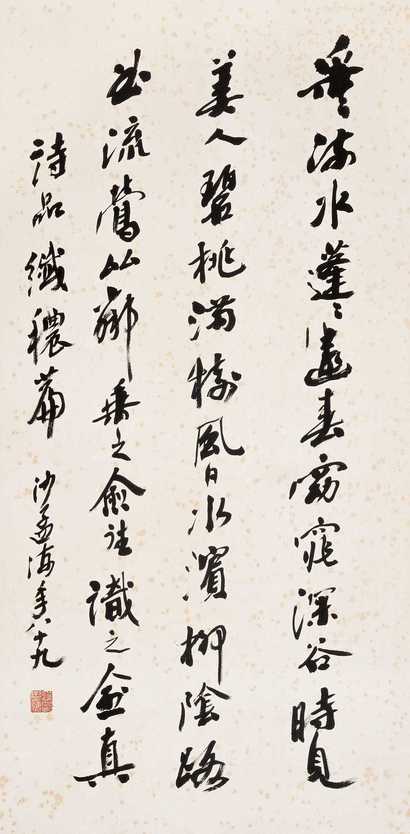 采〻流水蓬〻遠春窈窕深谷時見
美人碧桃滿樹風日水濱柳陰路
曲流鶯比鄰乘之愈往識之愈真
詩品纖穠篇 沙孟海年八十九